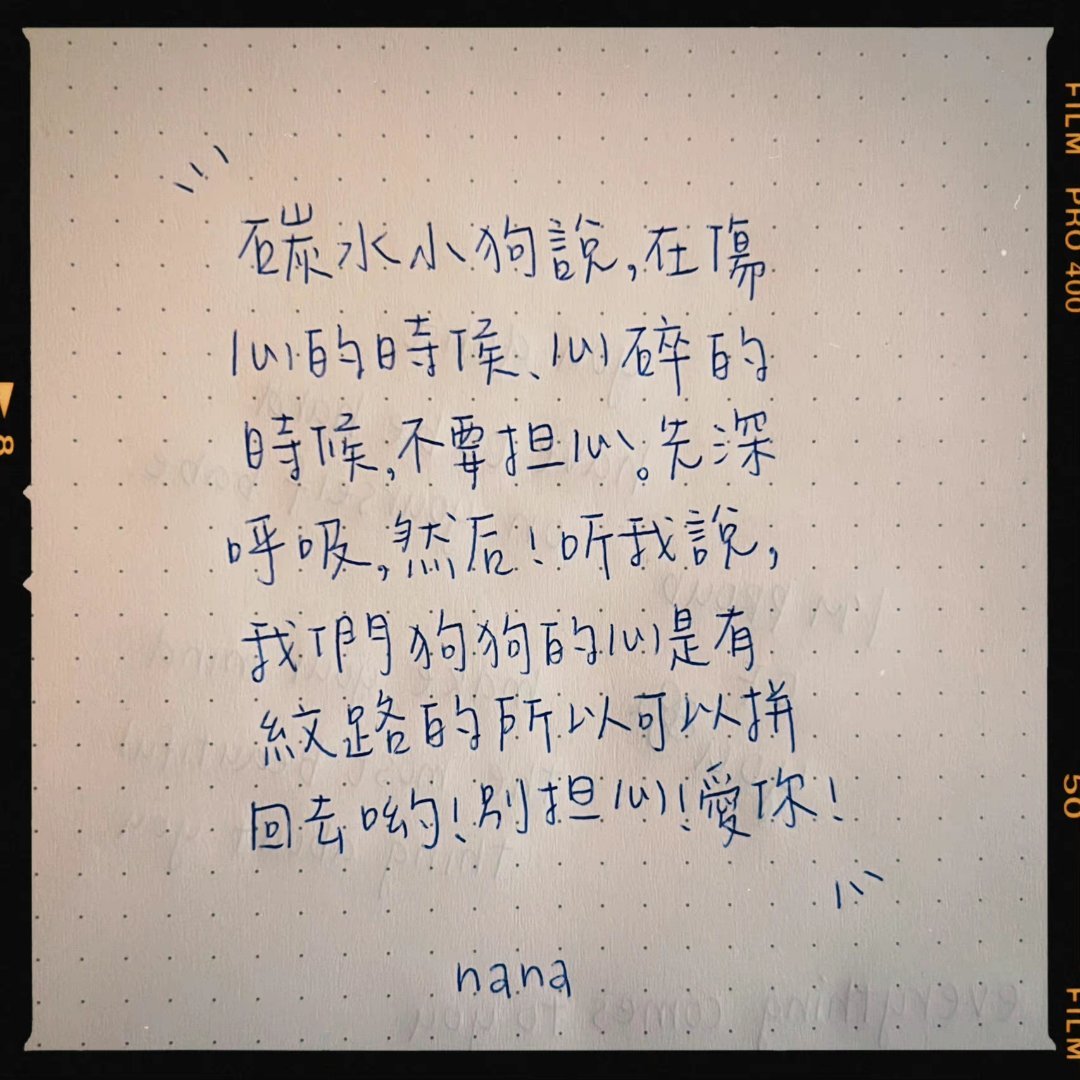 碳水小狗說,在傷
心的時候、心碎的
時候,不要担心。先深
呼吸,然后!听我說,
我們狗狗的心是有
紋路的所以可以拼
回去哟!別担心!愛你!
nana
everything comes to you
FILM PRO 400
50
FILM
8